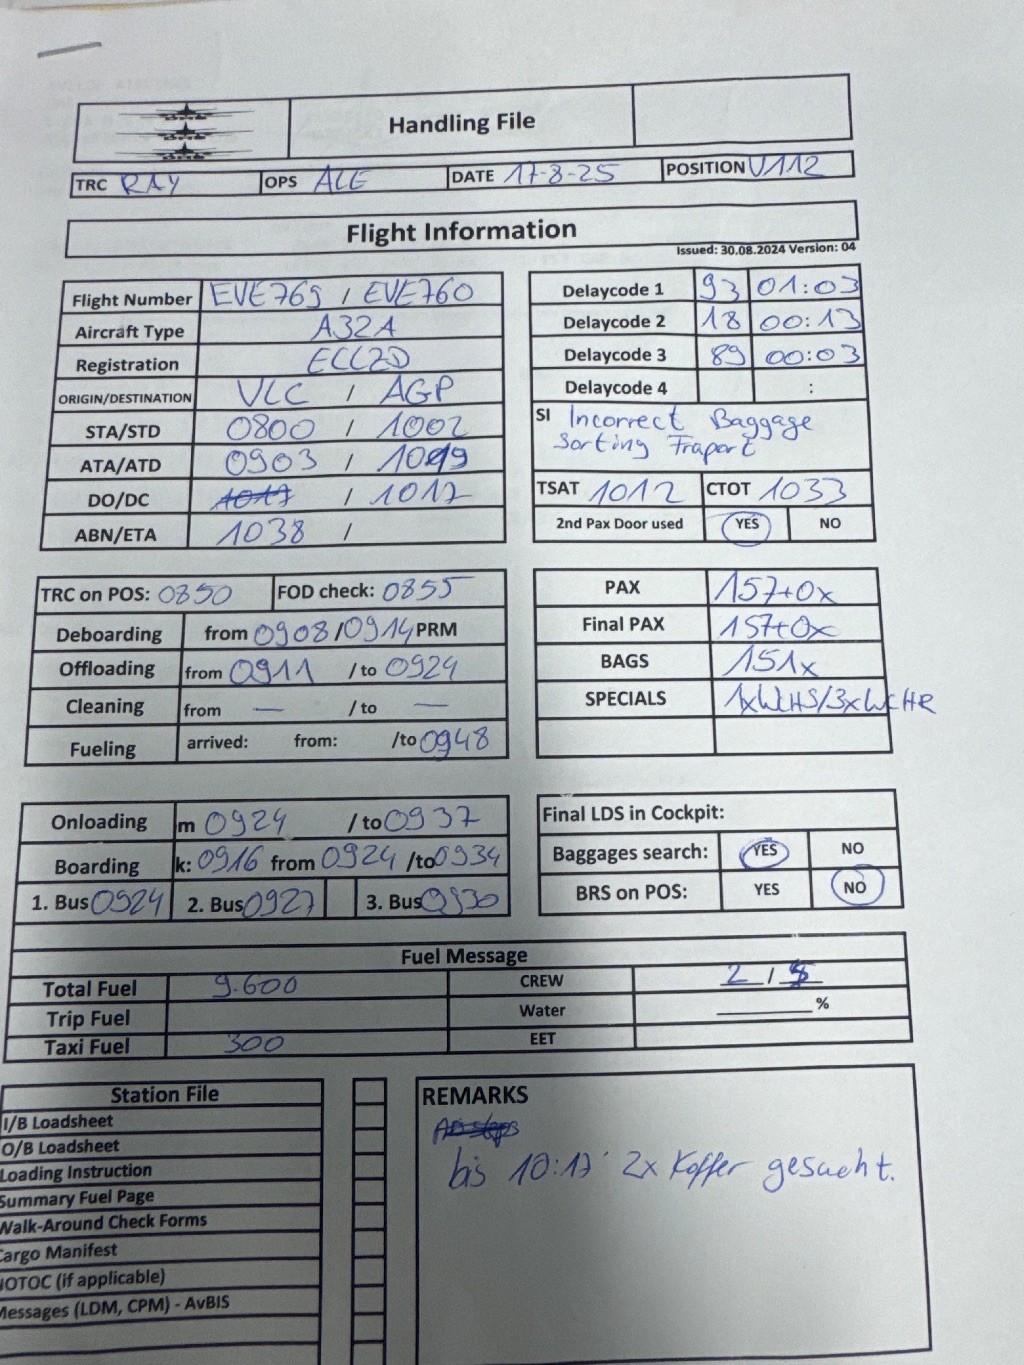 Handling File
TRC RAY OPS ALE DATE 17-8-25 POSITION V112
Flight Information
Issued: 30.08.2024 Version: 04
Flight Number EVE769 / EVE760
Aircraft Type A32A
Registration ECLZD
ORIGIN/DESTINATION VLC / AGP
STA/STD 0800 / 1002
ATA/ATD 0903 / 1019
DO/DC 1017 / 1017
ABN/ETA 1038 /
Delaycode 1 93 01:03
Delaycode 2 18 00:13
Delaycode 3 89 00:03
Delaycode 4 :
SI Incorrect Baggage
Sorting Fraport
TSAT 1012 CTOT 1033
2nd Pax Door used YES NO
TRC on POS: 0850 FOD check: 0855
Deboarding from 0908/0914 PRM
Offloading from 0911 / to 0924
Cleaning from — / to —
Fueling arrived: from: /to 0948
PAX 157+0x
Final PAX 157+0x
BAGS 151x
SPECIALS 1xWCHS/3xWCHR
Onloading m 0924 / to 0937
Boarding k: 0916 from 0924 /to 0934
1. Bus 0924 2. Bus 0927 3. Bus 0930
Final LDS in Cockpit:
Baggages search: YES NO
BRS on POS: YES NO
Fuel Message
Total Fuel 9.600 CREW 2 /
Trip Fuel Water %
Taxi Fuel 300 EET
Station File
I/B Loadsheet
O/B Loadsheet
Loading Instruction
Summary Fuel Page
Walk-Around Check Forms
Cargo Manifest
NOTOC (if applicable)
Messages (LDM, CPM) - AvBIS
REMARKS
bis 10:17 2x Koffer gesucht.